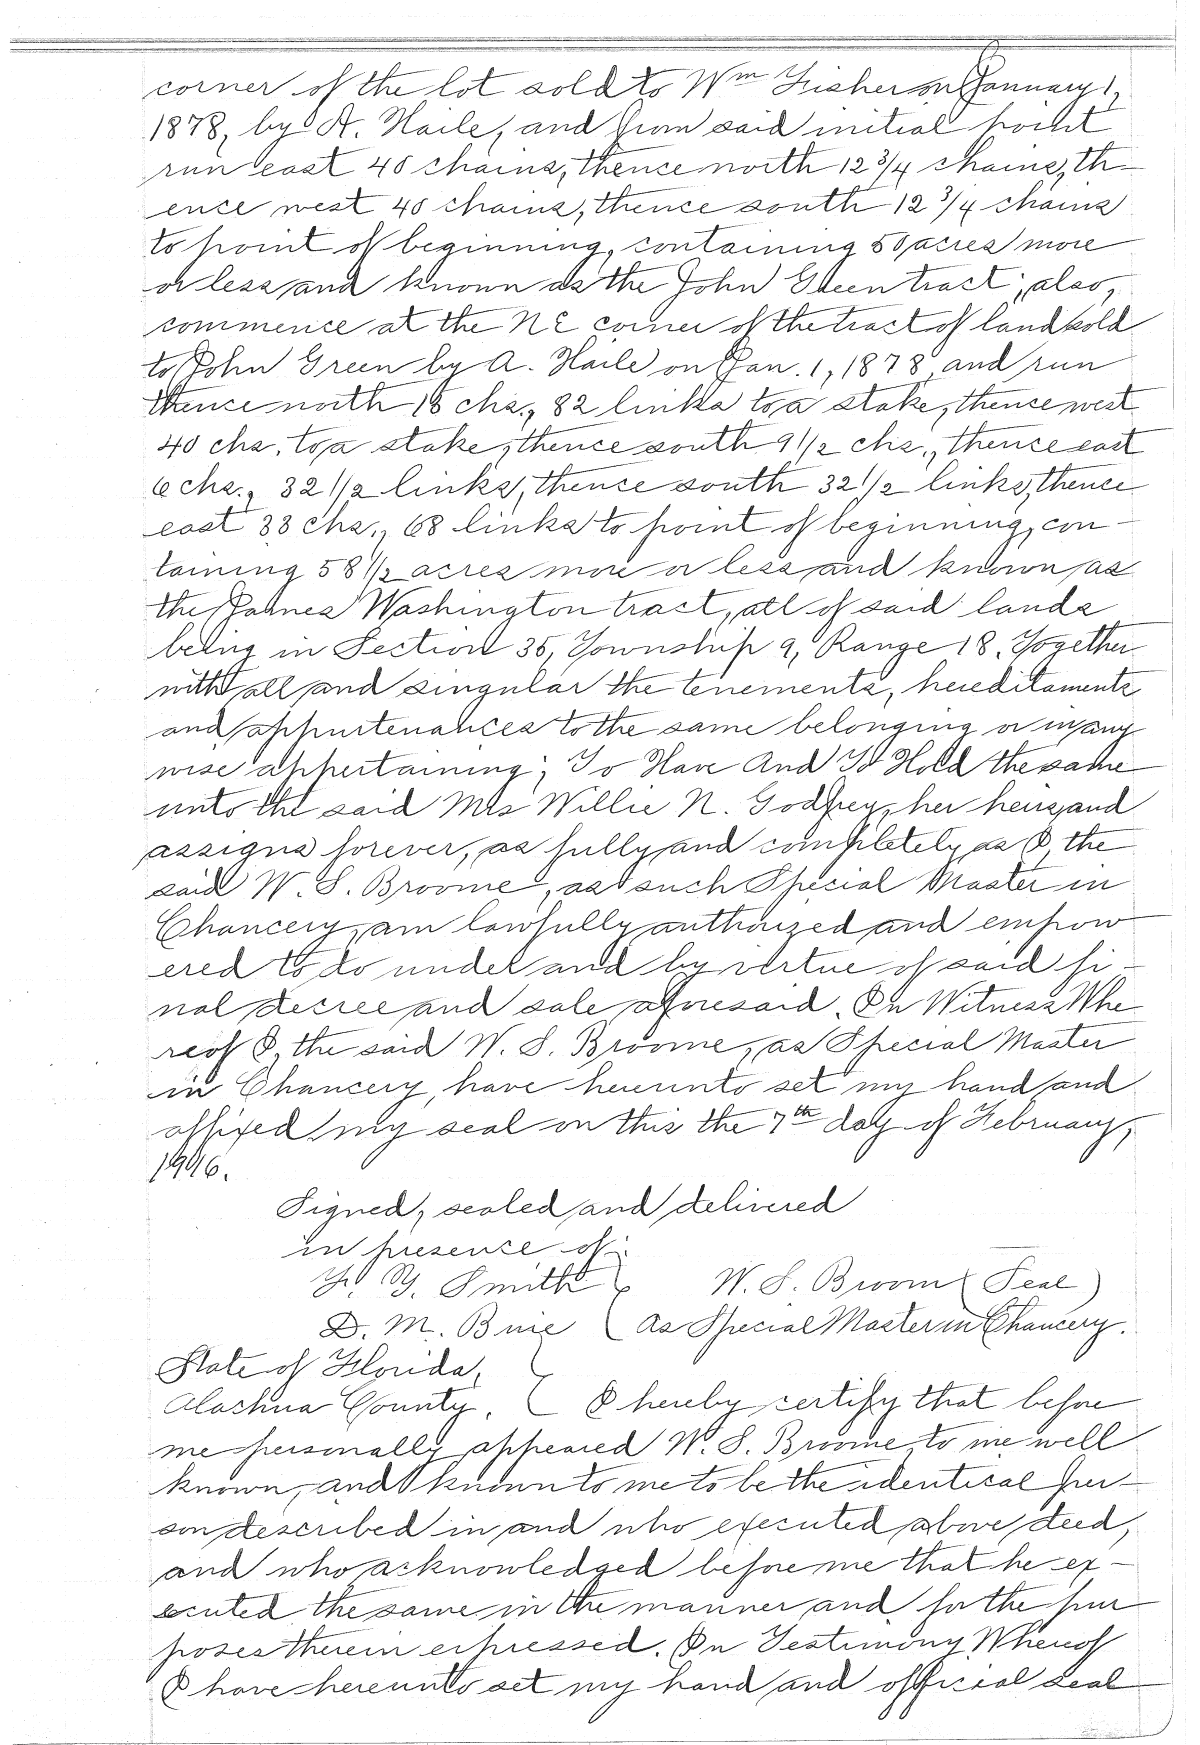 corner of the lot sold to Wm Fisher on January 1,
1878, by A. Haile, and from said initial point
run east 40 chains, thence north 12 3/4 chains, th-
ence west 40 chains, thence south 12 3/4 chains
to point of beginning, containing 50 acres more
or less and known as the John Green tract; also,
commence at the NE corner of the tract of land sold
to John Green by A. Haile on Jan. 1, 1878, and run
thence north 18 chs., 82 links to a stake, thence west
40 chs. to a stake, thence south 9 1/2 chs., thence east
6 chs., 32 1/2 links, thence south 32 1/2 links, thence
east 33 chs., 68 links to point of beginning, con-
taining 58 1/2 acres more or less and known as
the James Washington tract, all of said lands
being in Section 35, Township 9, Range 18, Together
with all and singular the tenements, hereditaments
and appurtenances to the same belonging or in any
wise appertaining; To Have And To Hold the same
unto the said Mrs Willie N. Godfrey, her heirs and
assigns forever, as fully and completely as I, the
said W. S. Broome, as such Special Master in
Chancery, am lawfully authorized and empow
ered to do under and by virtue of said fi-
nal decree and sale aforesaid. In Witness Whe
reof I, the said W. S. Broome, as Special Master
in Chancery, have hereunto set my hand and
affixed my seal on this the 7th day of February,
1906.
Signed, sealed and delivered
in presence of:
G. Smith } W. S. Broom (Seal)
D. M. Buie ( As Special Master in Chancery.
State of Florida,
Alachua County, I hereby certify that before
me personally appeared W. S. Broome, to me well
known, and known to me to be the identical per-
son described in and who executed above deed,
and who acknowledged before me that he ex-
ecuted the same in the manner and for the pur
poses therein expressed. In Testimony Whereof
I have hereunto set my hand and official seal